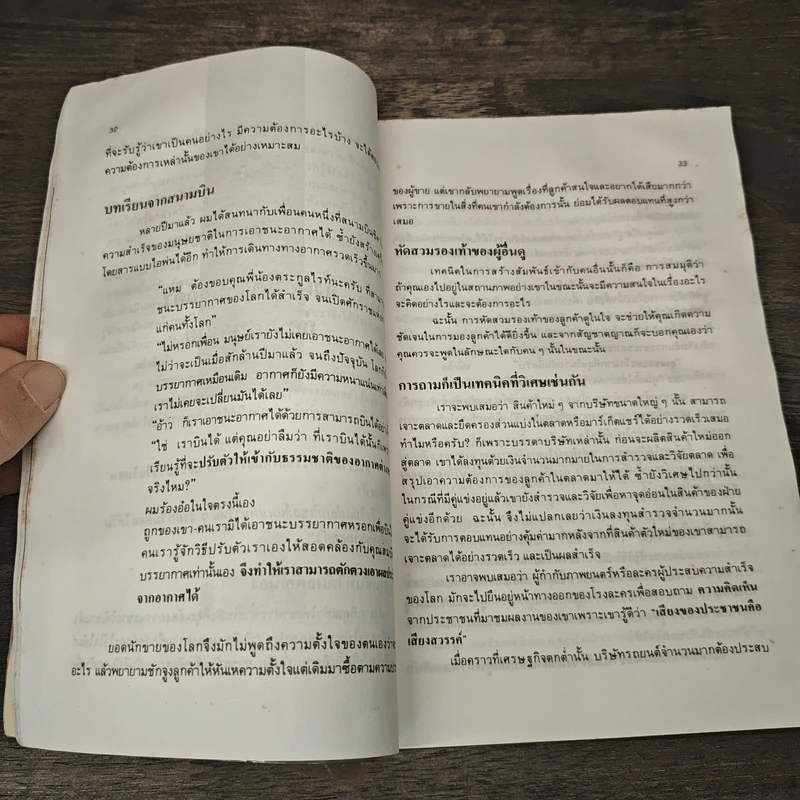 32
ที่จะรับรู้ว่าเขาเป็นคนอย่างไร มีความต้องการอะไรบ้าง จะได้
ความต้องการเหล่านั้นของเขาได้อย่างเหมาะสม
บทเรียนจากสนามบิน
หลายปีมาแล้ว ผมได้สนทนากับเพื่อนคนหนึ่งที่สนามบิน
ความสำเร็จของมนุษยชาติในการเอาชนะอากาศได้ ซ้ำยังสร้าง
โดยสารแบบไอพ่นได้อีก ทำให้การเดินทางทางอากาศรวดเร็วขึ้น
"แหม ต้องขอบคุณพี่น้องตระกูลไรท์นะครับ ที่
ชนะบรรยากาศของโลกได้สำเร็จ จนเปิดศักราช
แก่คนทั้งโลก"
"ไม่หรอกเพื่อน มนุษย์เรายังไม่เคยเอาชนะอากาศได้
ไม่ว่าจะเป็นเมื่อสักล้านปีมาแล้ว จนถึงปัจจุบัน
บรรยากาศเหมือนเดิม อากาศก็ยังมีความหนาแน่น
เราไม่เคยจะเปลี่ยนมันได้เลย"
"อ้าว ก็เราเอาชนะอากาศได้ด้วยการสามารถบินได้
"ใช่ เราบินได้ แต่คุณอย่าลืมว่า ที่เราบินได้นั้น
เรียนรู้ที่จะปรับตัวให้เข้ากับธรรมชาติของอากาศ
จริงไหม?"
ผมร้องอ๋อในใจตรงนี้เอง
ถูกของเขา-คนเรามิได้เอาชนะบรรยากาศหรอกเพื่อ
คนเรารู้จักวิธีปรับตัวเราเองให้สอดคล้องกับคุณ
บรรยากาศเท่านั้นเอง จึงทำให้เราสามารถตักตวงเอา
จากอากาศได้
ยอดนักขายของโลกจึงมักไม่พูดถึงความตั้งใจของตนเอง
อะไร แล้วพยายามชักจูงลูกค้าให้หันเหความตั้งใจแต่เดิมมาซื้อตามความ
33
ของผู้ขาย แต่เขากลับพยายามพูดเรื่องที่ลูกค้าสนใจและอยากได้เสียมากกว่า
เพราะการขายในสิ่งที่คนเขากำลังต้องการนั้น ย่อมได้รับผลตอบแทนที่สูงกว่า
เสมอ
หัดสวมรองเท้าของผู้อื่นดู
เทคนิคในการสร้างสัมพันธ์เข้ากับคนอื่นนั้นก็คือ การสมมุติว่า
ถ้าคุณเองไปอยู่ในสถานภาพอย่างเขาในขณะนั้นจะมีความสนใจในเรื่องอะไร
จะคิดอย่างไรและจะต้องการอะไร
ฉะนั้น การหัดสวมรองเท้าของลูกค้าดูในใจ จะช่วยให้คุณเกิดความ
ชัดเจนในการมองลูกค้าได้ดียิ่งขึ้น และจากสัญชาตญาณก็จะบอกคุณเองว่า
คุณควรจะพูดในลักษณะใดกับคน ๆ นั้นในขณะนั้น
การถามก็เป็นเทคนิคที่วิเศษเช่นกัน
เราจะพบเสมอว่า สินค้าใหม่ ๆ จากบริษัทขนาดใหญ่ ๆ นั้น สามารถ
เจาะตลาดและยึดครองส่วนแบ่งในตลาดหรือมาร์เก็ตแชร์ได้อย่างรวดเร็วเสมอ
ทำไมหรือครับ? ก็เพราะบรรดาบริษัทเหล่านั้น ก่อนจะผลิตสินค้าใหม่ออก
สู่ตลาด เขาได้ลงทุนด้วยเงินจำนวนมากมายในการสำรวจและวิจัยตลาด เพื่อ
สรุปเอาความต้องการของลูกค้าในตลาดมาให้ได้ ซ้ำยังวิเศษไปกว่านั้น
ในกรณีที่มีคู่แข่งอยู่แล้วเขายังสำรวจและวิจัยเพื่อหาจุดอ่อนในสินค้าของฝ่าย
คู่แข่งอีกด้วย ฉะนั้น จึงไม่แปลกเลยว่าเงินลงทุนสำรวจจำนวนมากนั้น
จะได้รับการตอบแทนอย่างคุ้มค่ามากหลังจากที่สินค้าตัวใหม่ของเขาสามารถ
เจาะตลาดได้อย่างรวดเร็ว และเป็นผลสำเร็จ
เราอาจพบเสมอว่า ผู้กำกับภาพยนตร์หรือละครผู้ประสบความสำเร็จ
ของโลก มักจะไปยืนอยู่หน้าทางออกของโรงละครเพื่อสอบถาม ความคิดเห็น
จากประชาชนที่มาชมผลงานของเขาเพราะเขารู้ดีว่า "เสียงของประชาชนคือ
เสียงสวรรค์"
เมื่อคราวที่เศรษฐกิจตกต่ำนั้น บริษัทรถยนต์จำนวนมากต้องประสบ